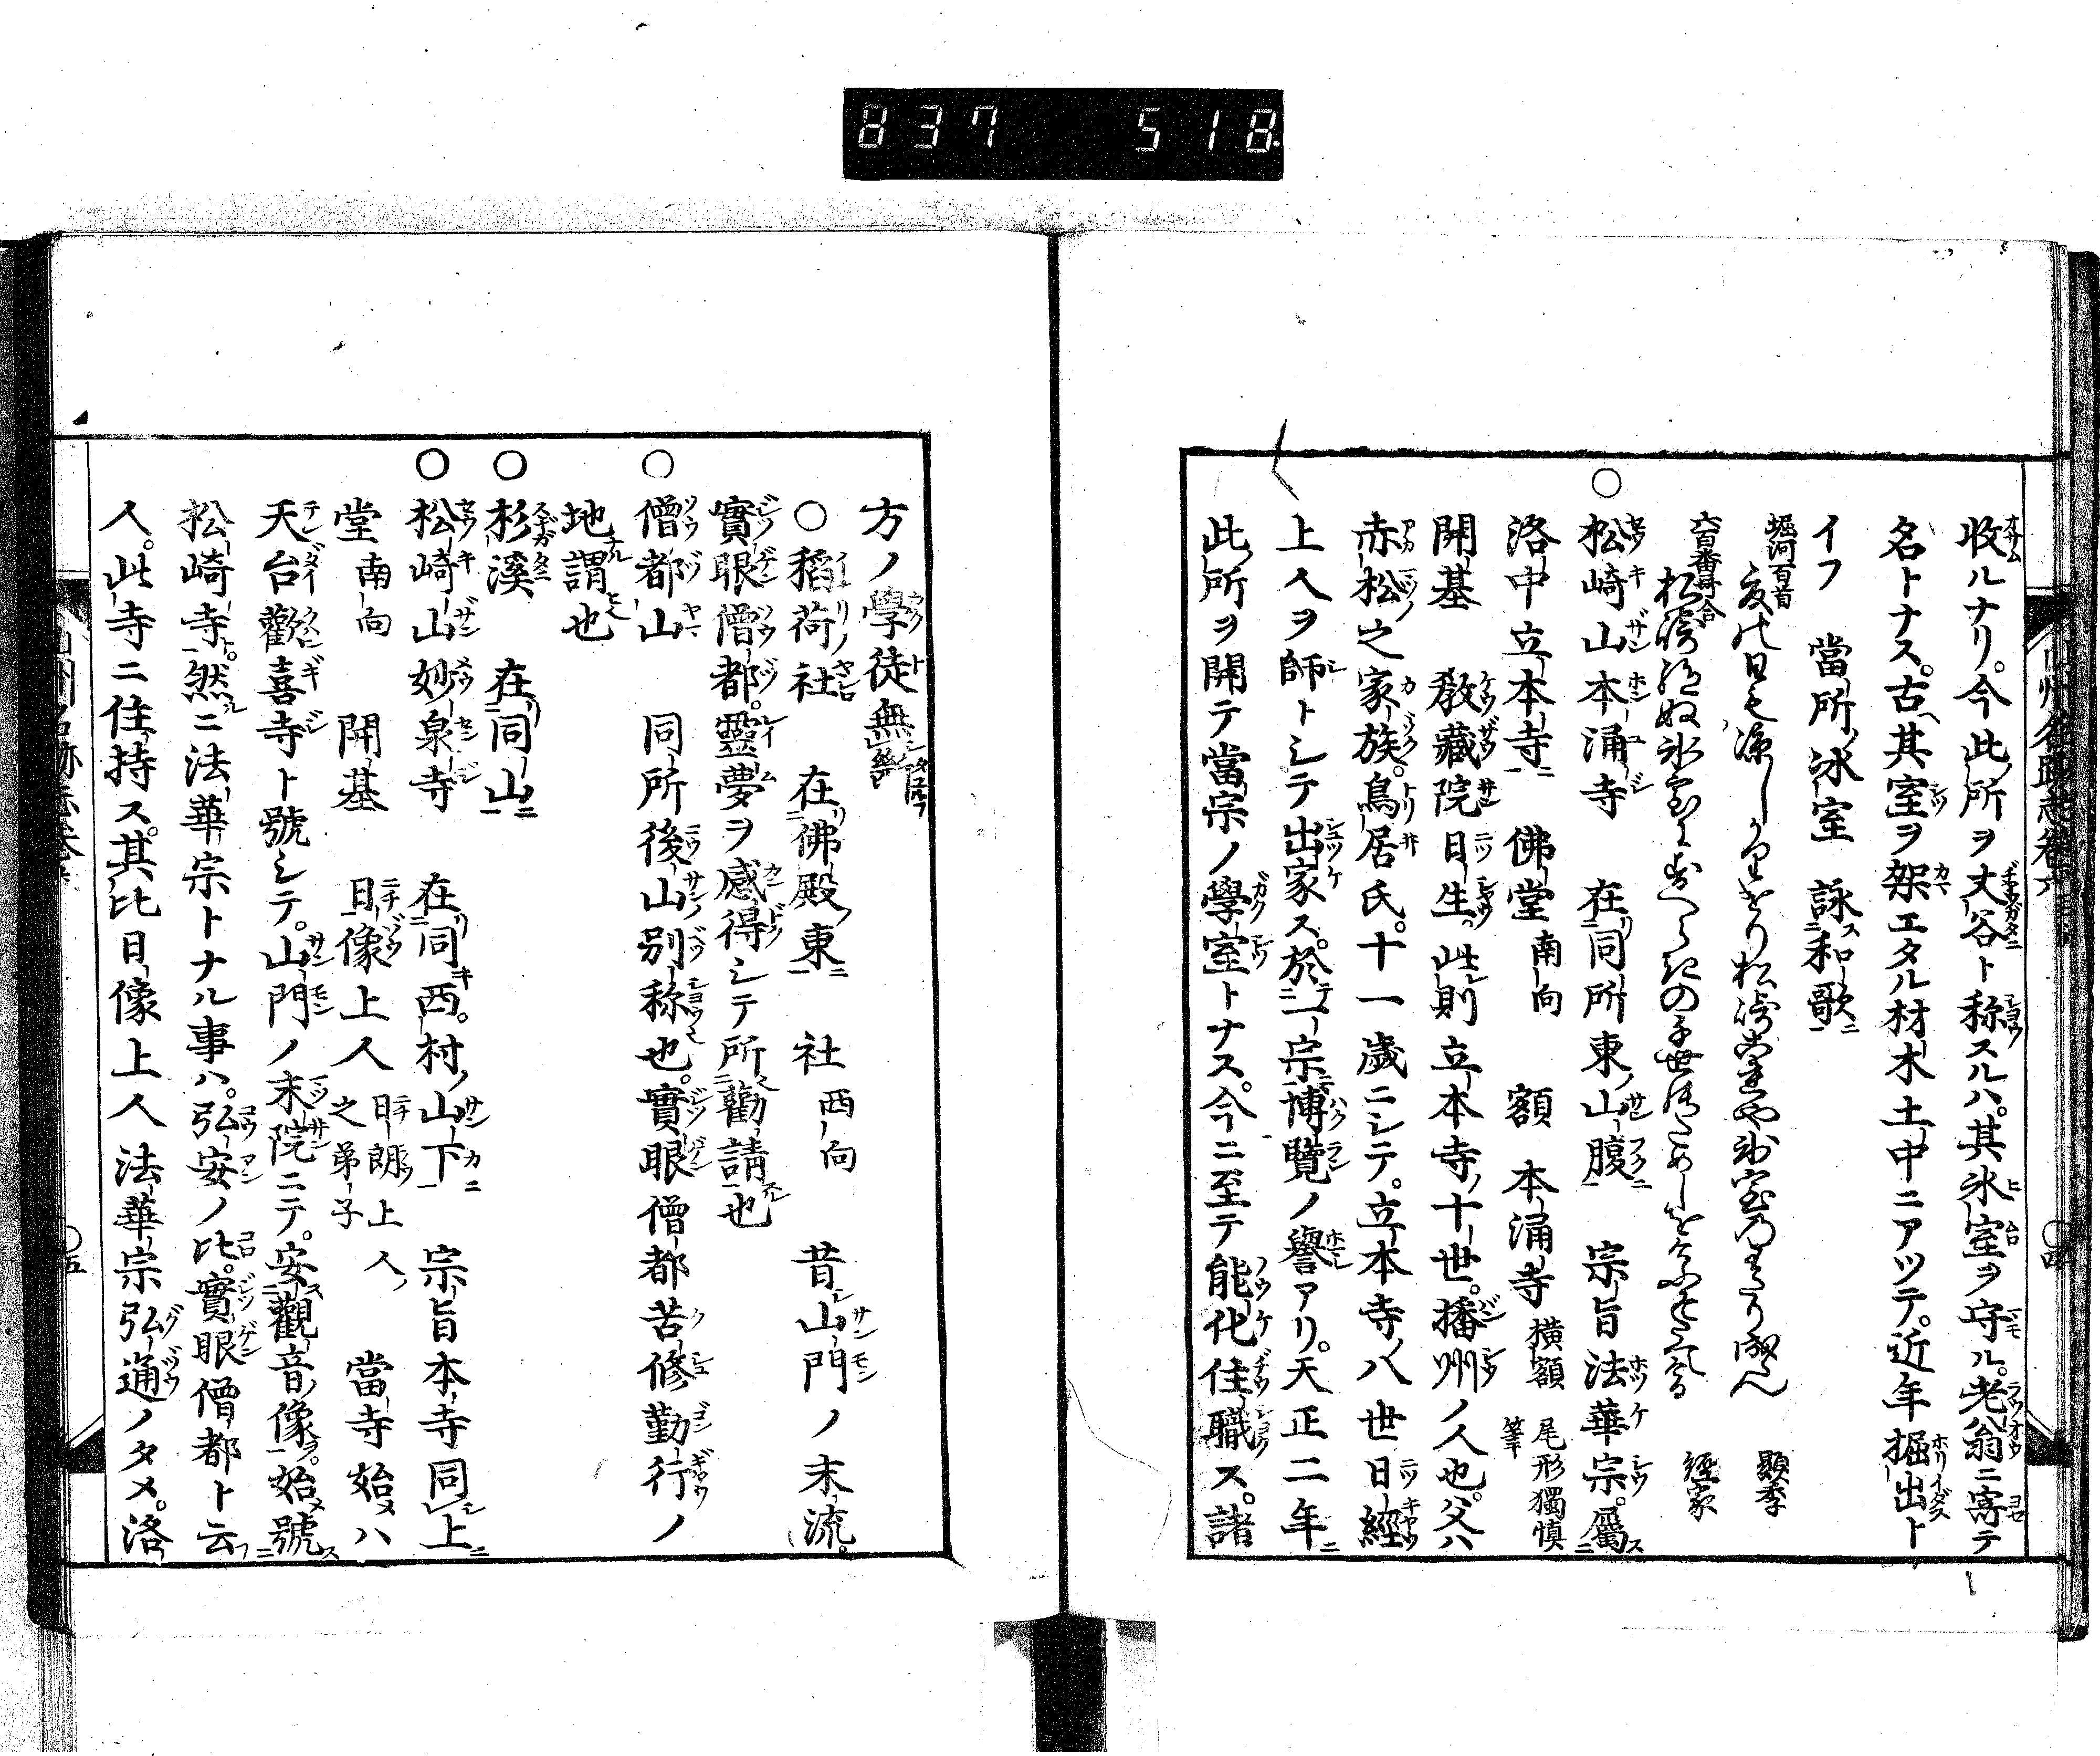 837 518
収ルナリ。今此所ヲ丈谷ト称スルハ。其氷室ヲ守ル。老翁ニ寄テ
名トナス。古其室ヲ架エタル材木土中ニアツテ。近年掘出ト
イフ 當所氷室 詠和歌
堀河百首
顯季
六百番哥合
經家
○松崎山本涌寺 在同所東山腹 宗旨法華宗。屬
洛中立本寺 佛堂 南向 額 本涌寺 横額 尾形獨慎筆
開基 教藏院日生。此則立本寺十世。播州ノ人也。父ハ
赤松之家族。鳥居氏。十一歳ニシテ。立本寺八世日經
上人ヲ師トシテ出家ス。於一宗博覽ノ譽アリ。天正二年
此所ヲ開テ當宗ノ學室トナス。今ニ至テ能化住職ス。諸
方ノ學徒無絶
○稻荷社 在佛殿東 社 西向 昔山門ノ末流。
實眼僧都。靈夢ヲ感得シテ所勸請也
○僧都山 同所後山別称也。實眼僧都苦修勤行ノ
地謂也
○杉溪 在同山
○松崎山妙泉寺 在同西。村山下 宗旨本寺同上
堂 南向 開基 日像上人 日朗上人之弟子 當寺始ハ
天台歡喜寺ト號シテ。山門ノ末院ニテ。安觀音像。始號
松崎寺。然ニ法華宗トナル事ハ。弘安ノ比。實眼僧都ト云
人。此寺ニ住持ス。其比日像上人法華宗弘通ノタメ。洛